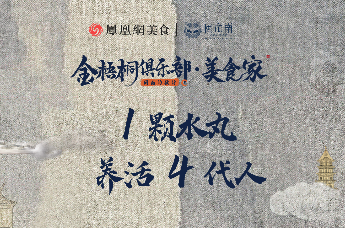 鳳凰網美食
金梧桐俱乐部·美食家
1颗水丸
养活4代人